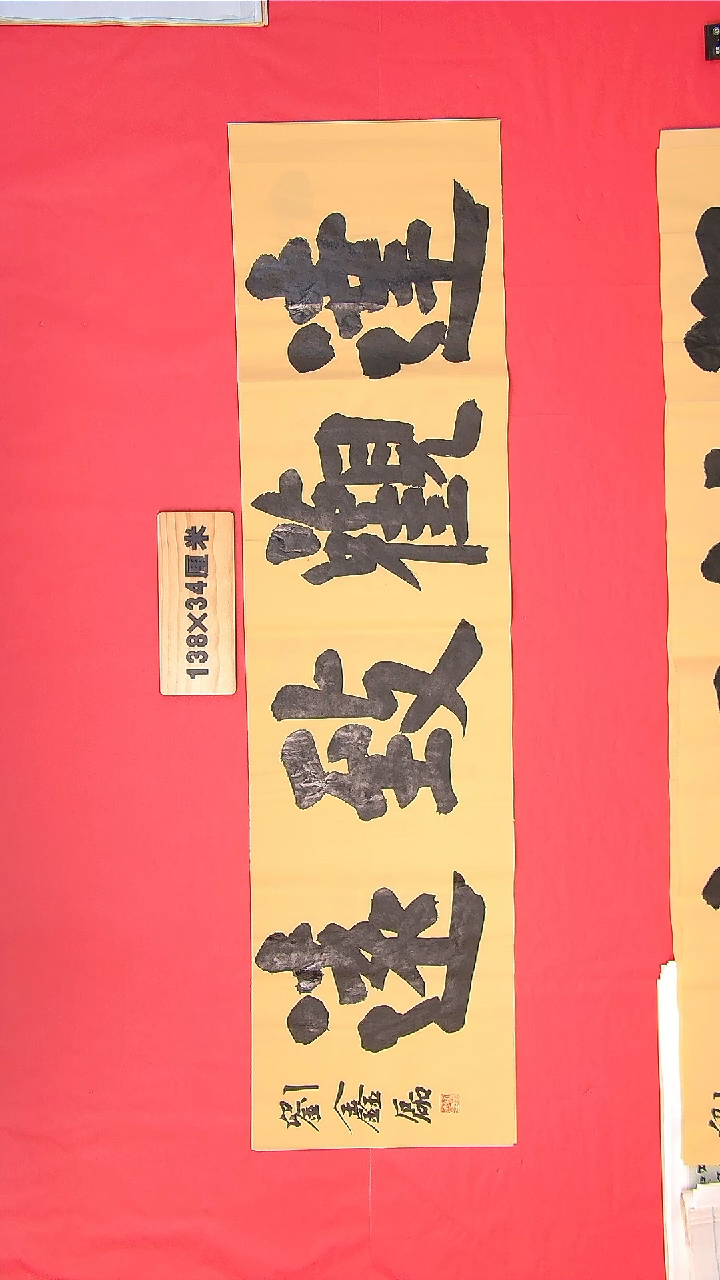 達觀致遠
劉鑫磊
138×34厘米